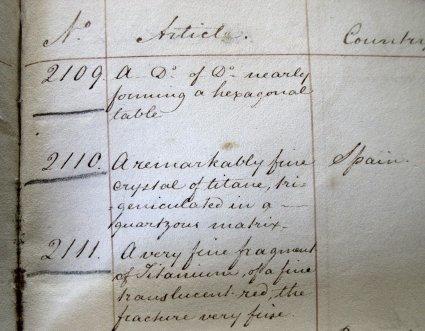 No. Article. Country
2109 A Do. of Do. nearly
forming a hexagonal
table
2110. A remarkably fine Spain.
crystal of titane, tri-
-geniculated in a
quartzous matrix.
2111. A very fine fragment
of Titanium, of a fine
translucent red, the
fracture very fine.